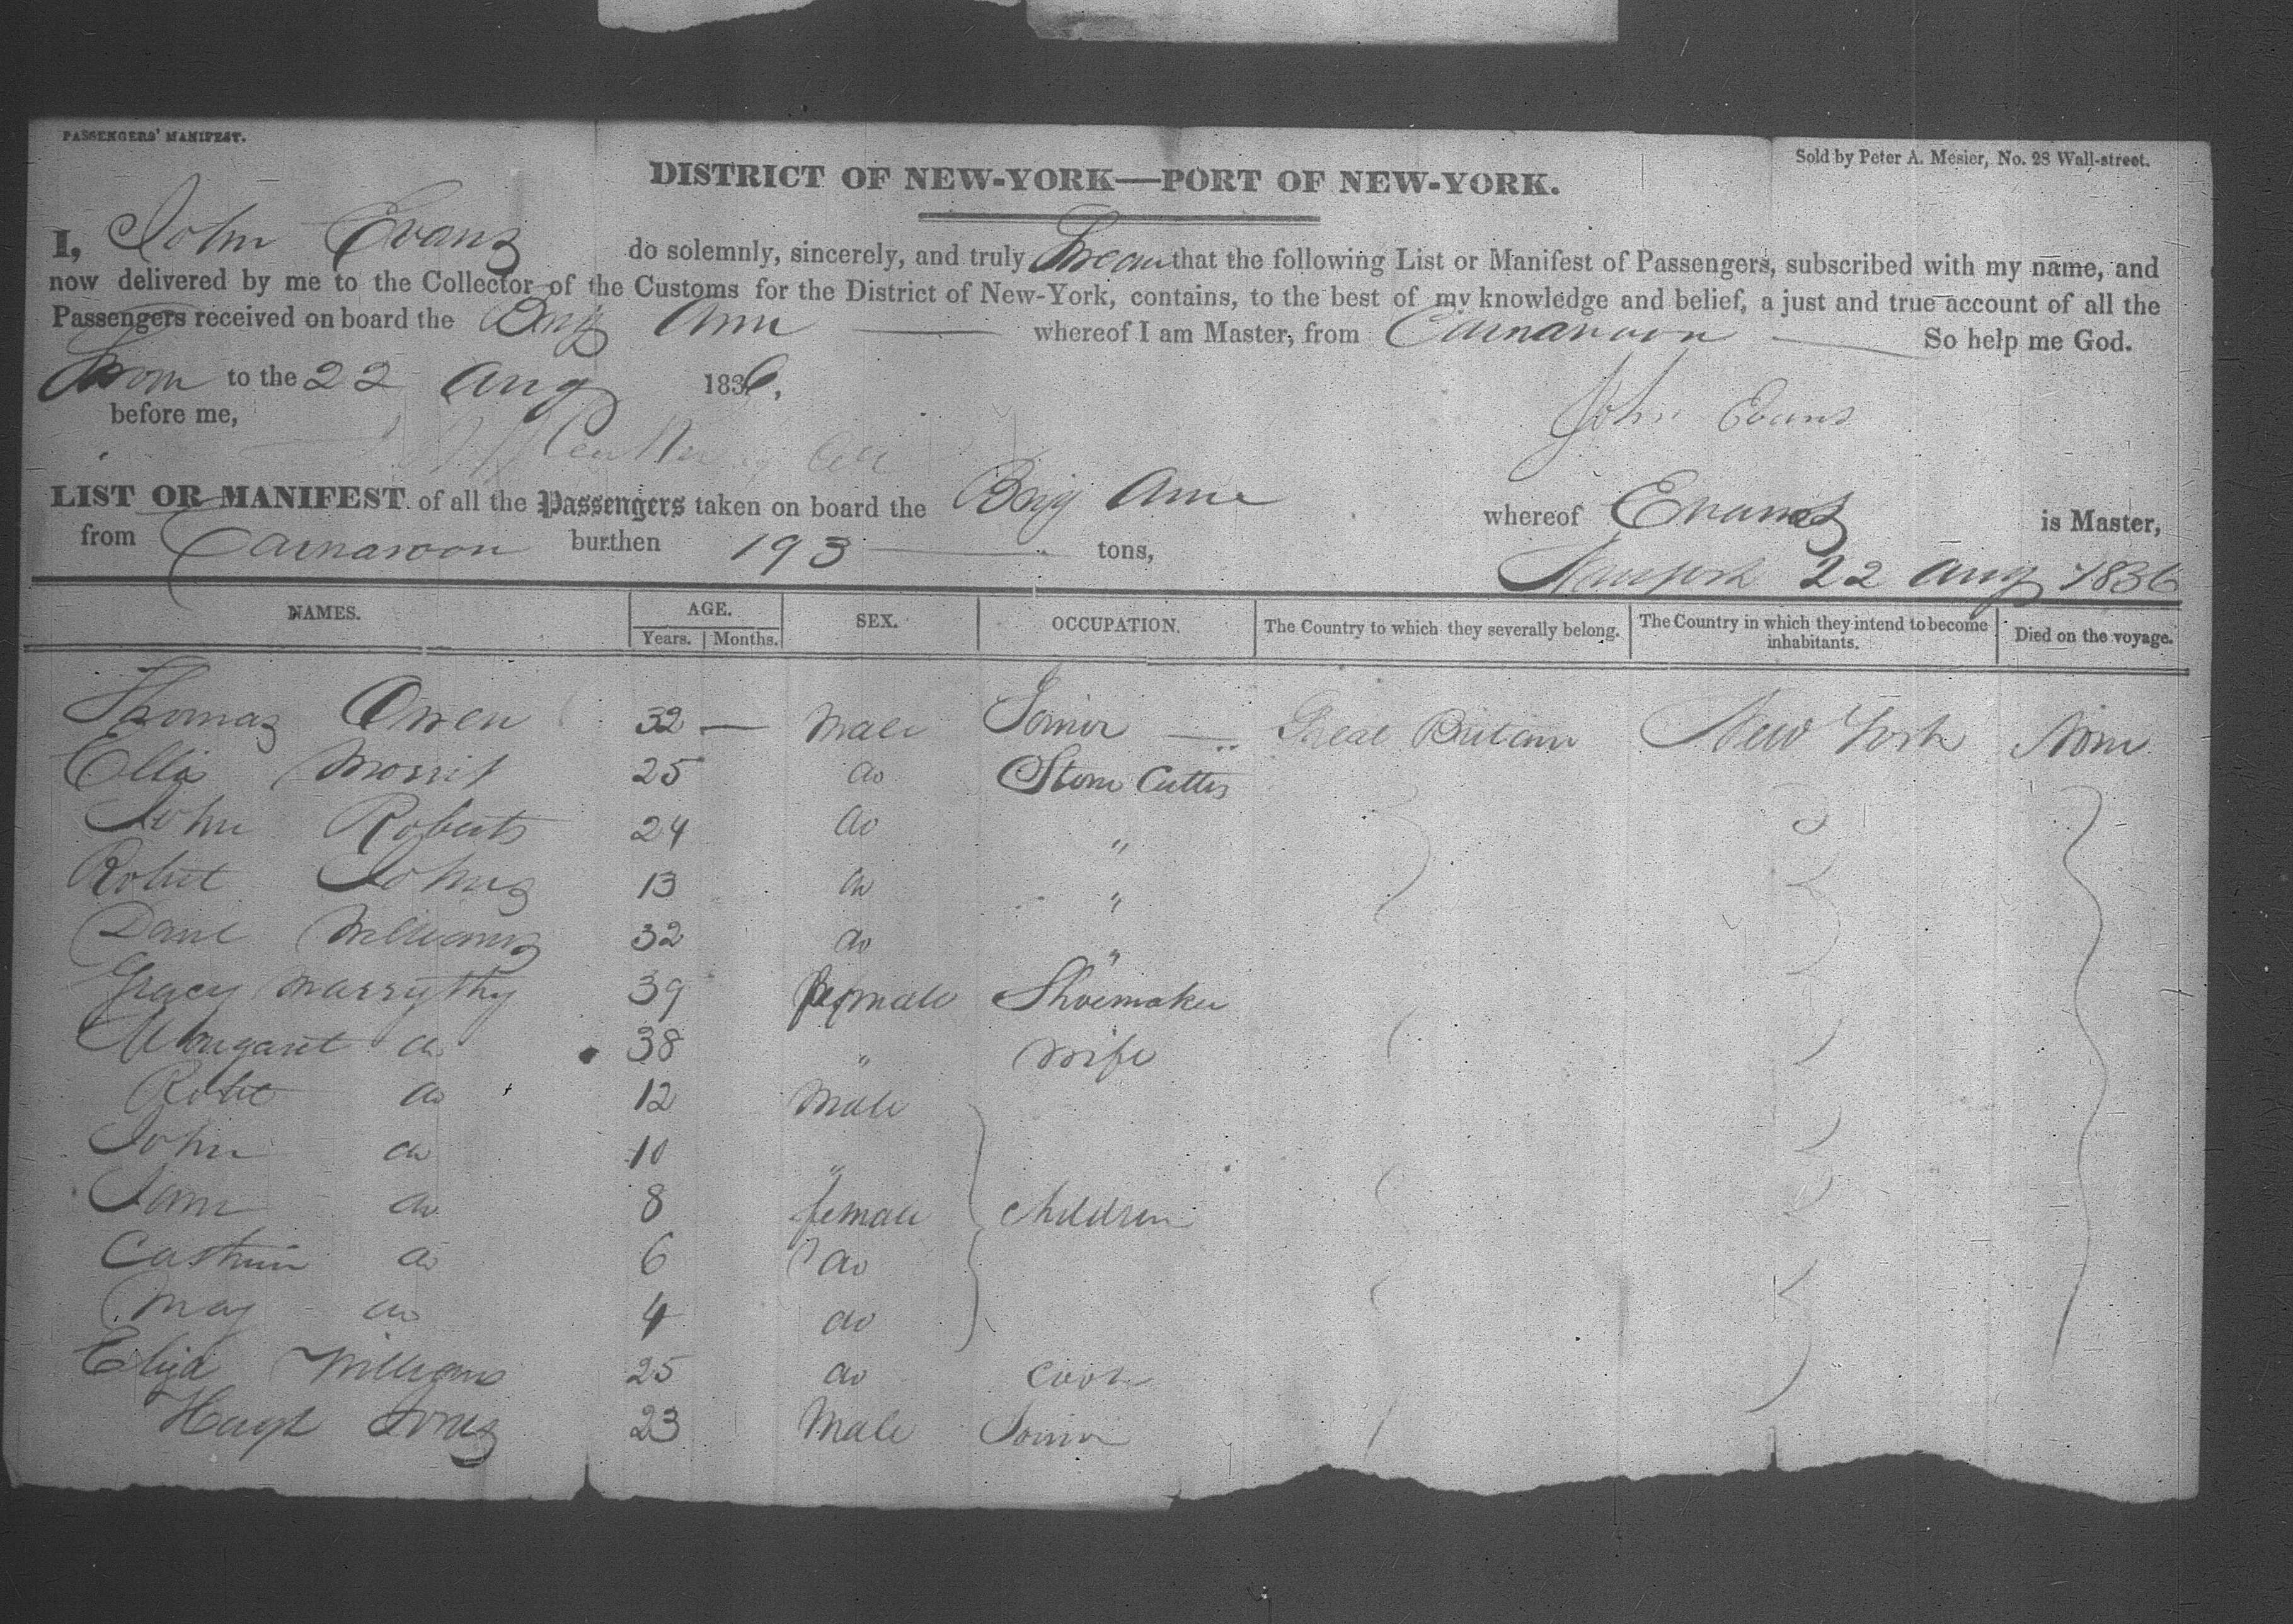 PASSENGERS' MANIFEST.
Sold by Peter A. Mesier, No. 28 Wall-street.
DISTRICT OF NEW-YORK—PORT OF NEW-YORK.
I, John Evans do solemnly, sincerely, and truly Swear that the following List or Manifest of Passengers, subscribed with my name, and
now delivered by me to the Collector of the Customs for the District of New-York, contains, to the best of my knowledge and belief, a just and true account of all the
Passengers received on board the Brig Ann whereof I am Master, from Carnarvon So help me God.
Sworn to the 22 Aug 1836.
before me,
John Evans
LIST OR MANIFEST of all the Passengers taken on board the Brig Ann whereof Evans is Master,
from Carnarvon burthen 193 tons,
Newyork 22 Aug 1836
NAMES. AGE. SEX. OCCUPATION. The Country to which they severally belong. The Country in which they intend to become inhabitants. Died on the voyage.
Years. Months.
Thomas Owen 32 — Male Joiner Great Britain New York None
Ellis Morris 25 do Stone Cutter
John Roberts 24 do "
Robert Johns 13 do "
David Williams 32 do "
Gracy 39 female Shoemaker
Margaret do 38 " Wife
Robt do 12 Male
John do 10 "
Jane do 8 female children
do 6 do
Mary do 4 do
Eliza Williams 25 do Cook
Hugh Jones 23 Male Joiner